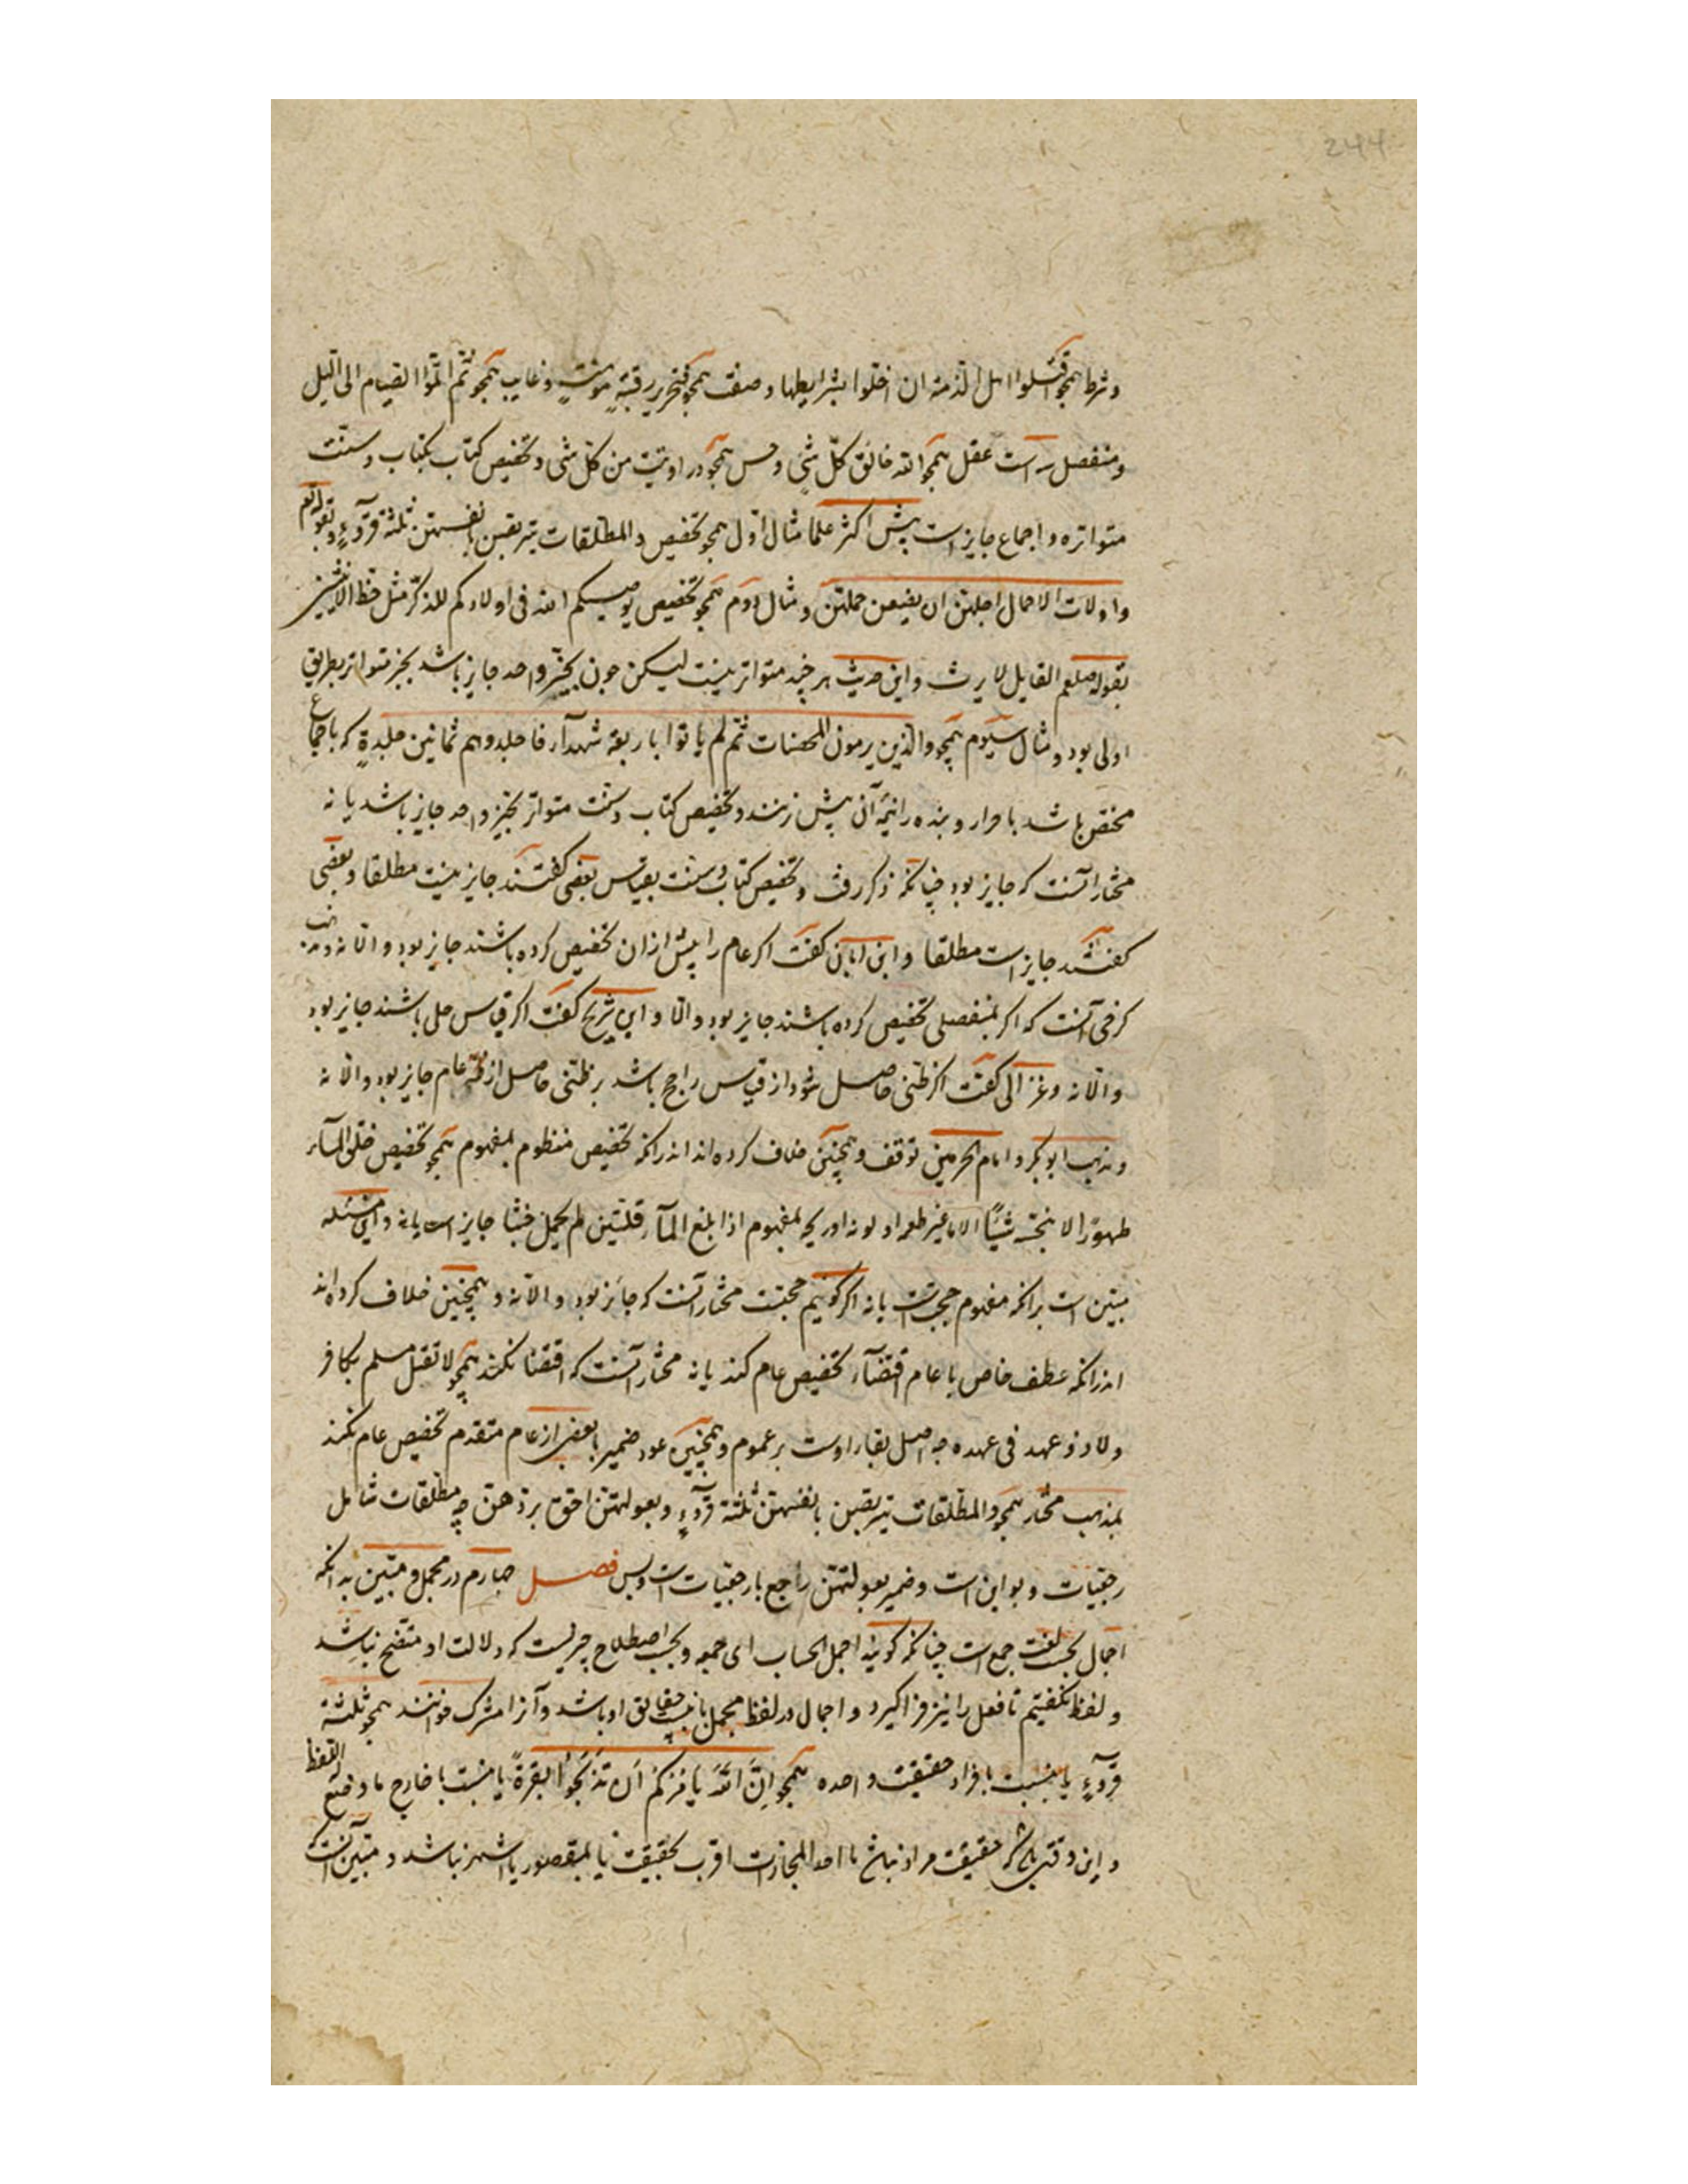 وشرط همچو اقتلوا اهل الذمه ان اخلوا بشرایطها وصفت همچو فتحریر رقبةٍ مومنةٍ وغایت همچو ثم اتمّوا الصیام الی اللیل
ومنفصل سه است عقل همچو الله خالق کلّ شئ وحس همچو در اوتیت من کل شئ وتخصیص کتاب بکتاب وسنّت
متواتره واجماع جایز است پیش اکثر علما مثال اول همچو تخصیص والمطلقات یتربصن بانفسهن ثلثة قروءٍ بقوله تع
واولات الاحمال اجلهن ان یضعن حملهن ومثال دوم همچو تخصیص یوصیکم الله فی اولادکم للذکر مثل حظ الانثیین
بقوله صلعم القاتل لا یرث واین حدیث هر چند متواتر نیست لیکن چون بخبر واحد جایز باشد بخبر متواتر بطریق
اولی بود ومثال سیوم همچو والذین یرمون المحصنات ثم لم یاتوا باربعة شهدآء فاجلدوهم ثمانین جلدةٍ که باجماع
مختص باشد باحرار وبنده را نیمهٔ آن بیش نزنند وتخصیص کتاب وسنت متواتر بخبر واحد جایز باشد یا نه
مختار آنست که جایز بود چنانکه ذکر رفت وتخصیص کتاب وسنت بقیاس بعضی گفتند جایز نیست مطلقا وبعضی
گفتند جایز است مطلقا وابن ابان گفت اکر عام را پیش ازان تخصیص کرده باشند جایز بود والّا نه ومذهب
کرخی آنست که اکر بمنفصلی تخصیص کرده باشند جایز بود والّا وابن شریح گفت اکر قیاس جلی باشند جایز بود
والّا نه وغزالی گفت اکر ظنی حاصل شود از قیاس راجح باشد بر ظنّی حاصل از عام جایز بود والّا نه
ومذهب ابوبکر وامام الحرمین توقف وهمچنین خلاف کرده اند اندرانکه تخصیص منظوم بمفهوم همچو تخصیص خلق المآء
طهورًا لا ینجّسه شیئًا الا ما غیر طعمه او لونه او ریحه بمفهوم اذا بلغ المآء قلتین لم یحمل خبثا جایز است یا نه واین مسئله
مبنی است برانکه مفهوم حجت است یا نه اکر گوئیم حجتست مختار آنست که جائز بود والّا نه وهمچنین خلاف کرده اند
اندرانکه عطف خاص با عام اقتضآء تخصیص عام کند یا نه مختار آنست که اقتضا نکند همچو لا تقتل مسلم بکافر
ولا ذو عهد فی عهده چه اصل بقاء اوست بر عموم وهمچنین عود ضمیر با بعضی از عام متقدم تخصیص عام نکند
بمذهب مختار همچو والمطلقات یتربصن بانفسهن ثلثة قروءٍ وبعولتهن احق بردهن چه مطلقات شامل
رجعیات وبواین است وضمیر بعولتهن راجع بارجعیات است وبس فصل چهارم در مجمل ومبیّن بدانکه
اجمال بحسب لغت جمع است چنانکه گویند اجمل الحساب ای جمعه وبحسب اصطلاح چیزیست که دلالت او متضح نباشد
ولفظ نگفتیم تا فعل را نیز فراگیرد واجمال در لفظ مجمل بانسبت حقایق او باشد وآنرا مشرک خوانند همچو ثلثة
قروءٍ یا بنسبت بافراد حقیقت واحده همچو اِنَّ اللّٰهَ یَامُرُکُم اَن تَذبَحُوا البقرةً یا بنسبت باخارج ما وضع اللفظ
واین وقتی باشد که حقیقت مراد نباشد با احد المجازات اقرب بحقیقت یا بمقصود یا اشهر نباشد ومبیّن آنست